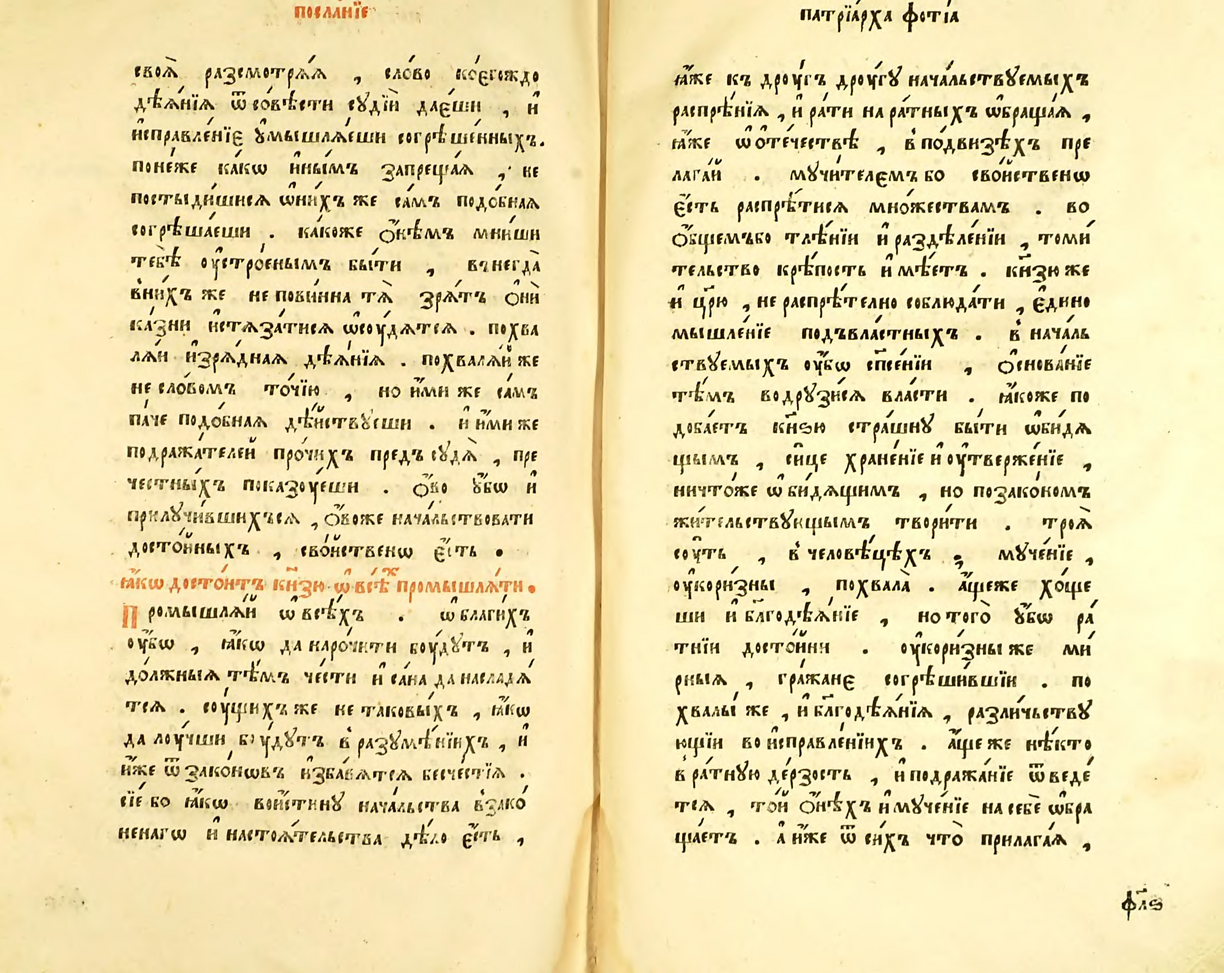 посланїе
своѧ̀ разсмотрѧ́ѧ , сло́во кое́гождо
дѣѧ́нїѧ ѿ со́вѣсти сꙋдїи̑ дае́ши , и҆
и҆справле́нїе ᲂу҆мышлѧ́еши согрѣше́нныхъ.
поне́же ка́кѡ и҆ны́мъ запреща́ѧ , не
постыди́шисѧ ѡ҆ни́хъ же са́мъ подо́бнаѧ
согрѣша́еши . како́же ѻ҆нѣ́мъ мни́ши
тебѣ̀ оу҆стро́енымъ бы́ти , внегда̀
в̾ни́хъ же непови́нна тѧ̀ зрѧ́тъ ѻ҆нѝ
ка́зни и҆стѧза́тисѧ ѡ҆соу́дѧтсѧ . похва
лѧ́и и҆зрѧ́днаѧ дѣѧ́нїѧ . похвалѧ́й же
несло́вомъ то́чїю , но и҆́ми же са́мъ
па́че подо́бнаѧ дѣ́йствꙋеши . и҆ и҆́миже
подража́телей про́чихъ предъ сꙋдѧ̀ , пре
че́стныхъ показоу́еши . ѻ҆́во ᲂу҆́бѡ и҆
прилꙋчи́вшихъсѧ , ѻ҆́воже нача́льствовати
досто́йныхъ , сво́йственѡ є҆́сть .
ꙗ҆́кѡ досто́итъ кн҃зю ѡ҆ всѣ́хъ промышлѧ́ти .
Промышлѧ́й ѡ҆ всѣ́хъ . ѡ҆ благи́хъ
оу҆́бѡ , ꙗ҆́кѡ да наро́чити боу́дꙋтъ , и҆
до́лжныѧ тѣ́мъ че́сти и҆ са́на да наслада́
тсѧ . соу́щихъже не таковы́хъ , ꙗ҆́кѡ
да лоу́чши боу́дꙋтъ в̾ разꙋмѣ́нїихъ , и҆
и҆́же ѿ зако́новъ и҆зба́вѧтсѧ бесче́стїѧ .
сїе́ бо ꙗ҆́кѡ вои́стинꙋ нача́льства в̾зако́
ненагѡ и҆ настоѧ́тельства дѣ́ло є҆́сть ,
патрїа́рха фо́тїа
ꙗ҆́же къ дроу́гъ дроу́гꙋ нача́льствꙋемыхъ
распрѣ́нїѧ , и҆ ра́ти на ра́тныхъ ѡ҆браща́ѧ ,
ꙗ҆́же ѡ҆ оте́чествѣ , в̾ по́двизѣхъ пре
лага́й . мꙋчи́телемъ бо сво́йственѡ
є҆́сть распрѣ́тисѧ мно́жествам . во
ѻ҆́бщемъбо тлѣ́нїи и҆ раздѣле́нїи , томи́
тельство крѣ́пость и҆мѣ́етъ . кн҃зю же
и҆ цр҃ю , не распрѣ́телно соблюда́ти , є҆дино
мышле́нїе подъвла́стныхъ . в̾ нача́ль
ствꙋемыхъ оу҆́бѡ сп҃се́нїи , ѻ҆снова́нїе
тѣ́мъ водрꙋзи́сѧ вла́сти . ꙗ҆́коже по
доба́етъ кн҃ꙃю стра́шнꙋ бы́ти ѡ҆би́дѧ
щымъ , си́це хране́нїе и҆ оу҆тверже́нїе ,
ничто́же ѡ҆би́дѧщимъ , но позако́номъ
жи́тельствꙋющымъ твори́ти . троѧ̀
соу́ть , в̾ человѣ́цѣхъ , мꙋче́нїе ,
оу҆кори́зны , похвала̀ . а҆́щеже хо́ще
ши и҆ бл҃годѣѧ́нїе , но того̀ ᲂу҆́бѡ ра́
тнїи досто́йни . оу҆кори́зны же ми́
рныѧ , гра́жане согрѣши́вшїи . по
хвалы́ же , и҆ бл҃годѣѧ́нїѧ , разли́чьствꙋ
ющїи во и҆справле́нїихъ . а҆́ще же нѣ́кто
в̾ ра́тнꙋю де́рзость , и҆ подража́нїе ѿведе́
тсѧ , то́й ѻ҆нѣ́хъ и҆ мꙋче́нїе на себѐ ѡ҆бра
ща́етъ . а҆ и҆́же ѿ си́хъ что̀ прилага́ѧ ,
фл҃ꙅ